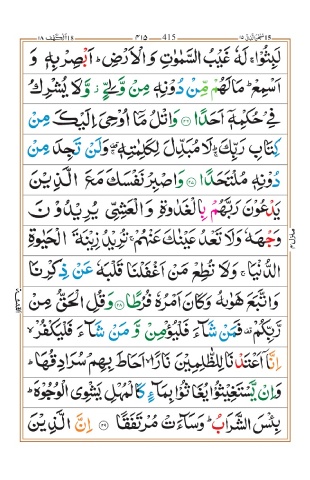 سبحن الذي ١٥ ٤١٥ 415 الكهف ١٨
لَبِثُوْا ۚ لَهٗ غَيْبُ السَّمٰوٰتِ وَالْاَرْضِ ؕ اَبْصِرْ بِهٖ وَ
اَسْمِعْ ؕ مَا لَهُمْ مِّنْ دُوْنِهٖ مِنْ وَّلِيٍّ ؗ وَّلَا يُشْرِكُ
فِيْ حُكْمِهٖۤ اَحَدًا ۝۲۶ وَاتْلُ مَاۤ اُوْحِيَ اِلَيْكَ مِنْ
كِتَابِ رَبِّكَ ؕ لَا مُبَدِّلَ لِكَلِمٰتِهٖ ۚ وَلَنْ تَجِدَ مِنْ
دُوْنِهٖ مُلْتَحَدًا ۝۲۷ وَاصْبِرْ نَفْسَكَ مَعَ الَّذِيْنَ
يَدْعُوْنَ رَبَّهُمْ بِالْغَدٰوةِ وَالْعَشِيِّ يُرِيْدُوْنَ
وَجْهَهٗ وَلَا تَعْدُ عَيْنٰكَ عَنْهُمْ ۚ تُرِيْدُ زِيْنَةَ الْحَيٰوةِ
الدُّنْيَا ۚ وَلَا تُطِعْ مَنْ اَغْفَلْنَا قَلْبَهٗ عَنْ ذِكْرِنَا
وَاتَّبَعَ هَوٰىهُ وَكَانَ اَمْرُهٗ فُرُطًا ۝۲۸ وَقُلِ الْحَقُّ مِنْ
رَّبِّكُمْ ۫ فَمَنْ شَآءَ فَلْيُؤْمِنْ وَّمَنْ شَآءَ فَلْيَكْفُرْ ۙ
اِنَّاۤ اَعْتَدْنَا لِلظّٰلِمِيْنَ نَارًا ۙ اَحَاطَ بِهِمْ سُرَادِقُهَا ؕ
وَاِنْ يَّسْتَغِيْثُوْا يُغَاثُوْا بِمَآءٍ كَالْمُهْلِ يَشْوِي الْوُجُوْهَ ؕ
بِئْسَ الشَّرَابُ ؕ وَسَآءَتْ مُرْتَفَقًا ۝۲۹ اِنَّ الَّذِيْنَ